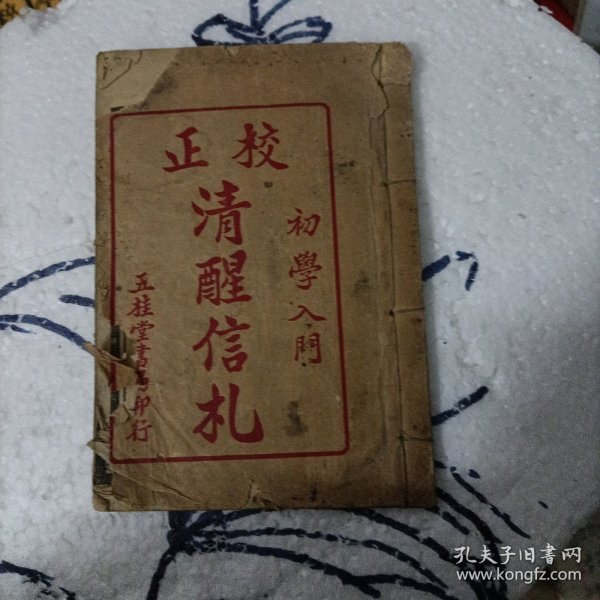 校正
初學入門
清醒信札
五桂堂書局印行
孔夫子旧书网
www.kongfz.com